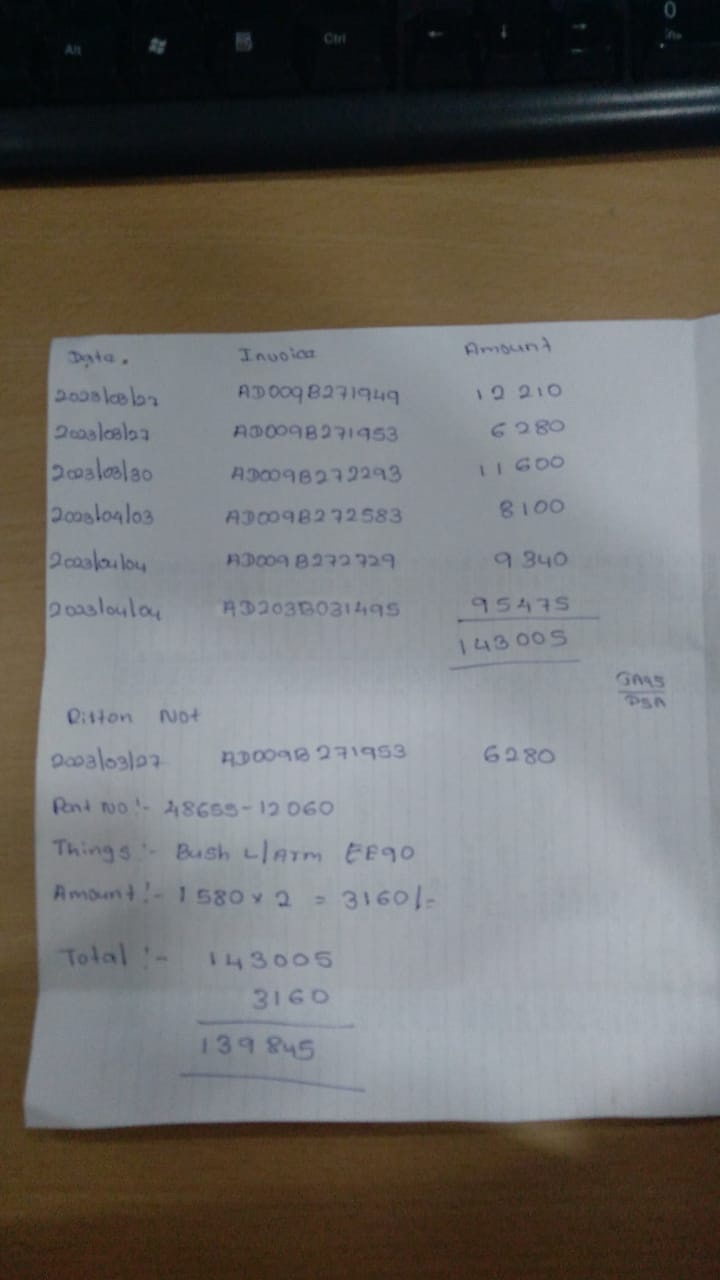 Alt Ctrl ← ↓ → 0
Ins
Date. Invoice Amount
2023/03/27 AD009B271949 12 210
2023/03/27 AD009B271953 6 280
2023/03/30 AD009B272293 11 600
2023/04/03 AD009B272583 8100
2023/04/04 AD009B272729 9 340
2023/04/04 AD203B031495 95475
143005
Ritton Not
2023/03/27 AD009B271953 6280
Part No :- 48655-12060
Things :- Bush L/Arm EE90
Amount :- 1580 x 2 = 3160/-
Total :- 143005
3160
139845